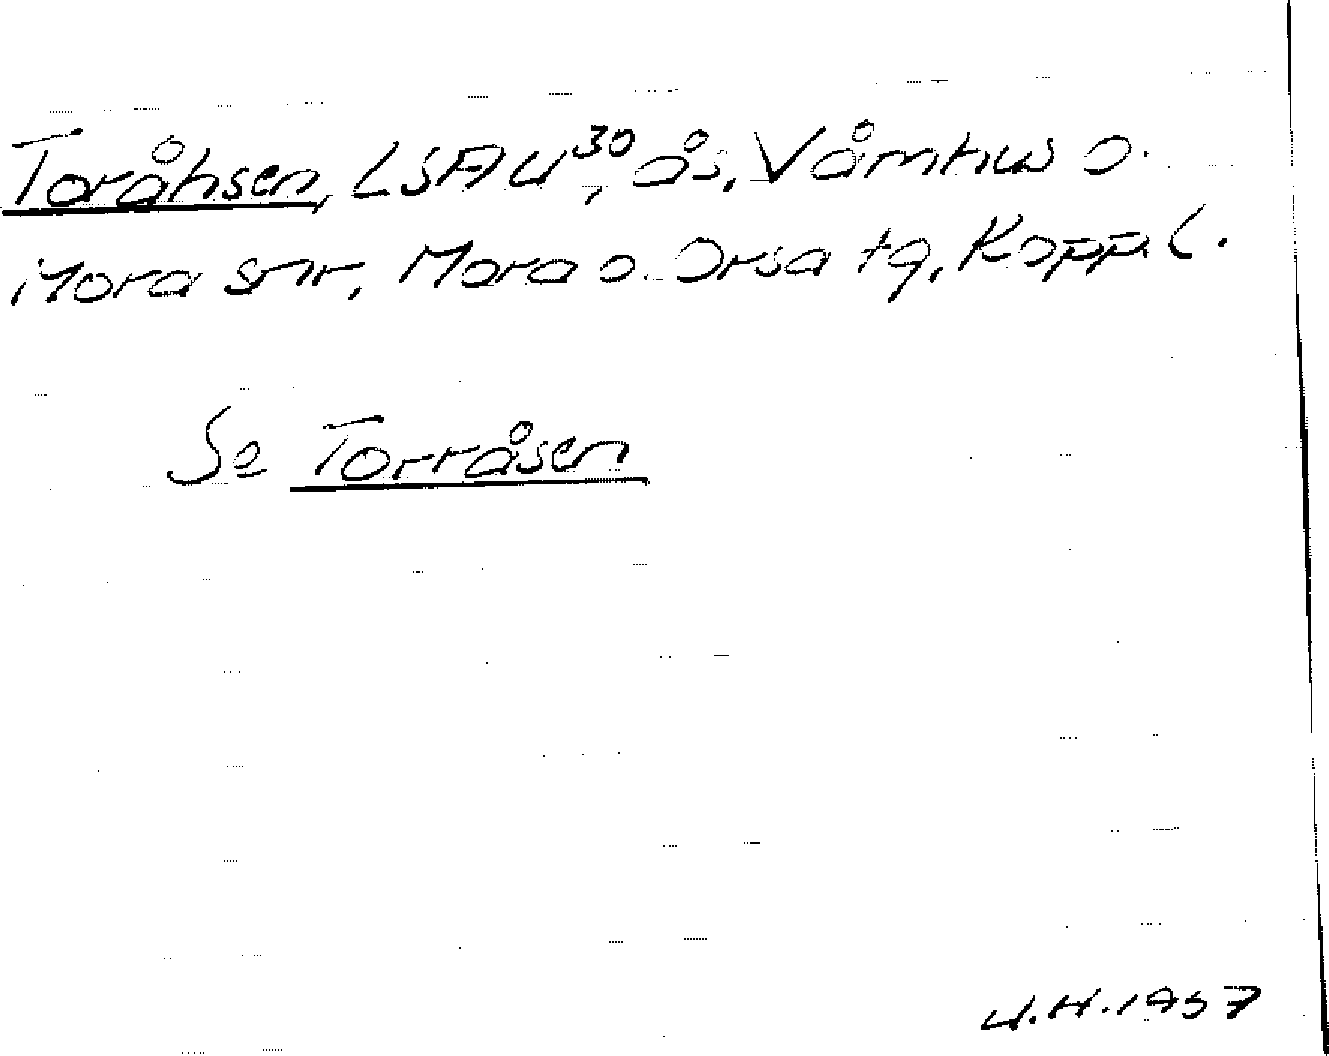 Toråhsen, LSAU 30, ås, Våmhus o.
Mora snr, Mora o. Orsa tg, Kopp. l.
Se Torråsen
U.H. 1957